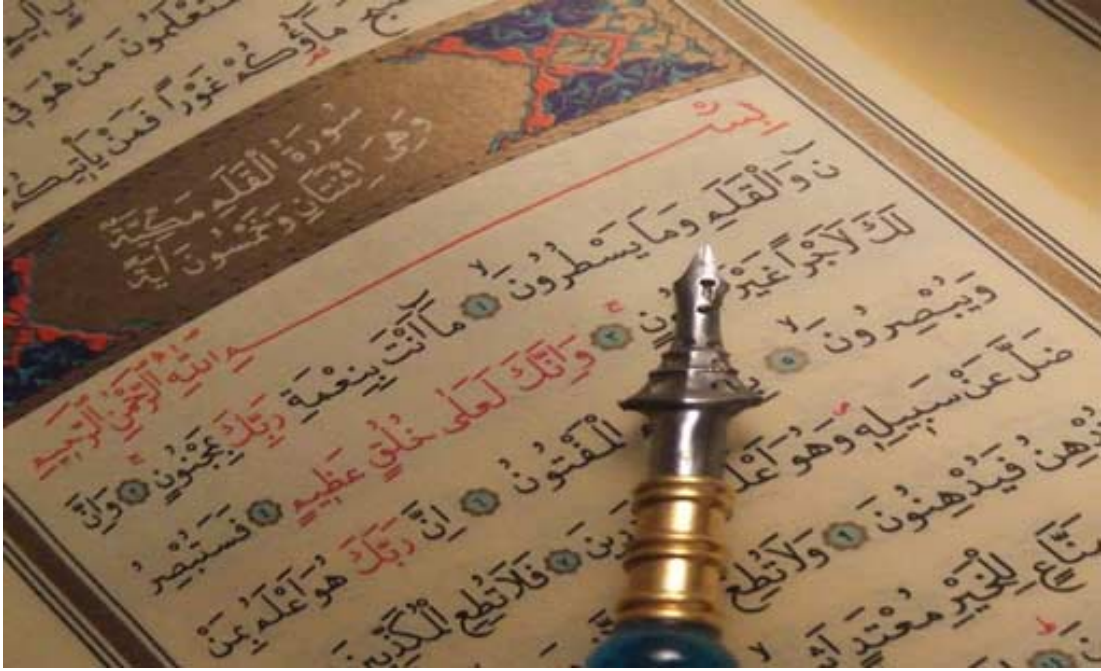 تَعْلَمُونَ مَنْ هُوَ فِي
مَآؤُكُمْ غَوْرًا فَمَنْ يَأْتِيكُمْ
سُورَةُ الْقَلَمِ مَكِّيَّةٌ
وَهِيَ اِثْنَتَانِ وَخَمْسُونَ آيَةً
بِسْمِ اللّٰهِ الرَّحْمٰنِ الرَّحِيمِ
نٓ وَالْقَلَمِ وَمَا يَسْطُرُونَۙ ١ مَٓا اَنْتَ بِنِعْمَةِ رَبِّكَ بِمَجْنُونٍۚ ٢ وَاِنَّ
لَكَ لَاَجْرًا غَيْرَ ٣ وَاِنَّكَ لَعَلٰى خُلُقٍ عَظِيمٍ ٤ فَسَتُبْصِرُ
وَيُبْصِرُونَۙ ٥ الْمَفْتُونُ ٦ اِنَّ رَبَّكَ هُوَ اَعْلَمُ بِمَنْ
ضَلَّ عَنْ سَبِيلِهِ وَهُوَ اَعْلَمُ ٧ فَلَا تُطِعِ الْمُكَذِّبِينَ
فَيُدْهِنُونَ ٩ وَلَا تُطِعْ
مَنَّاعٍ لِلْخَيْرِ مُعْتَدٍ